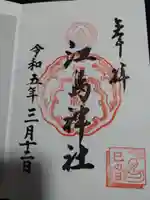 奉拝
江島神社
令和五年三月十二日
己巳